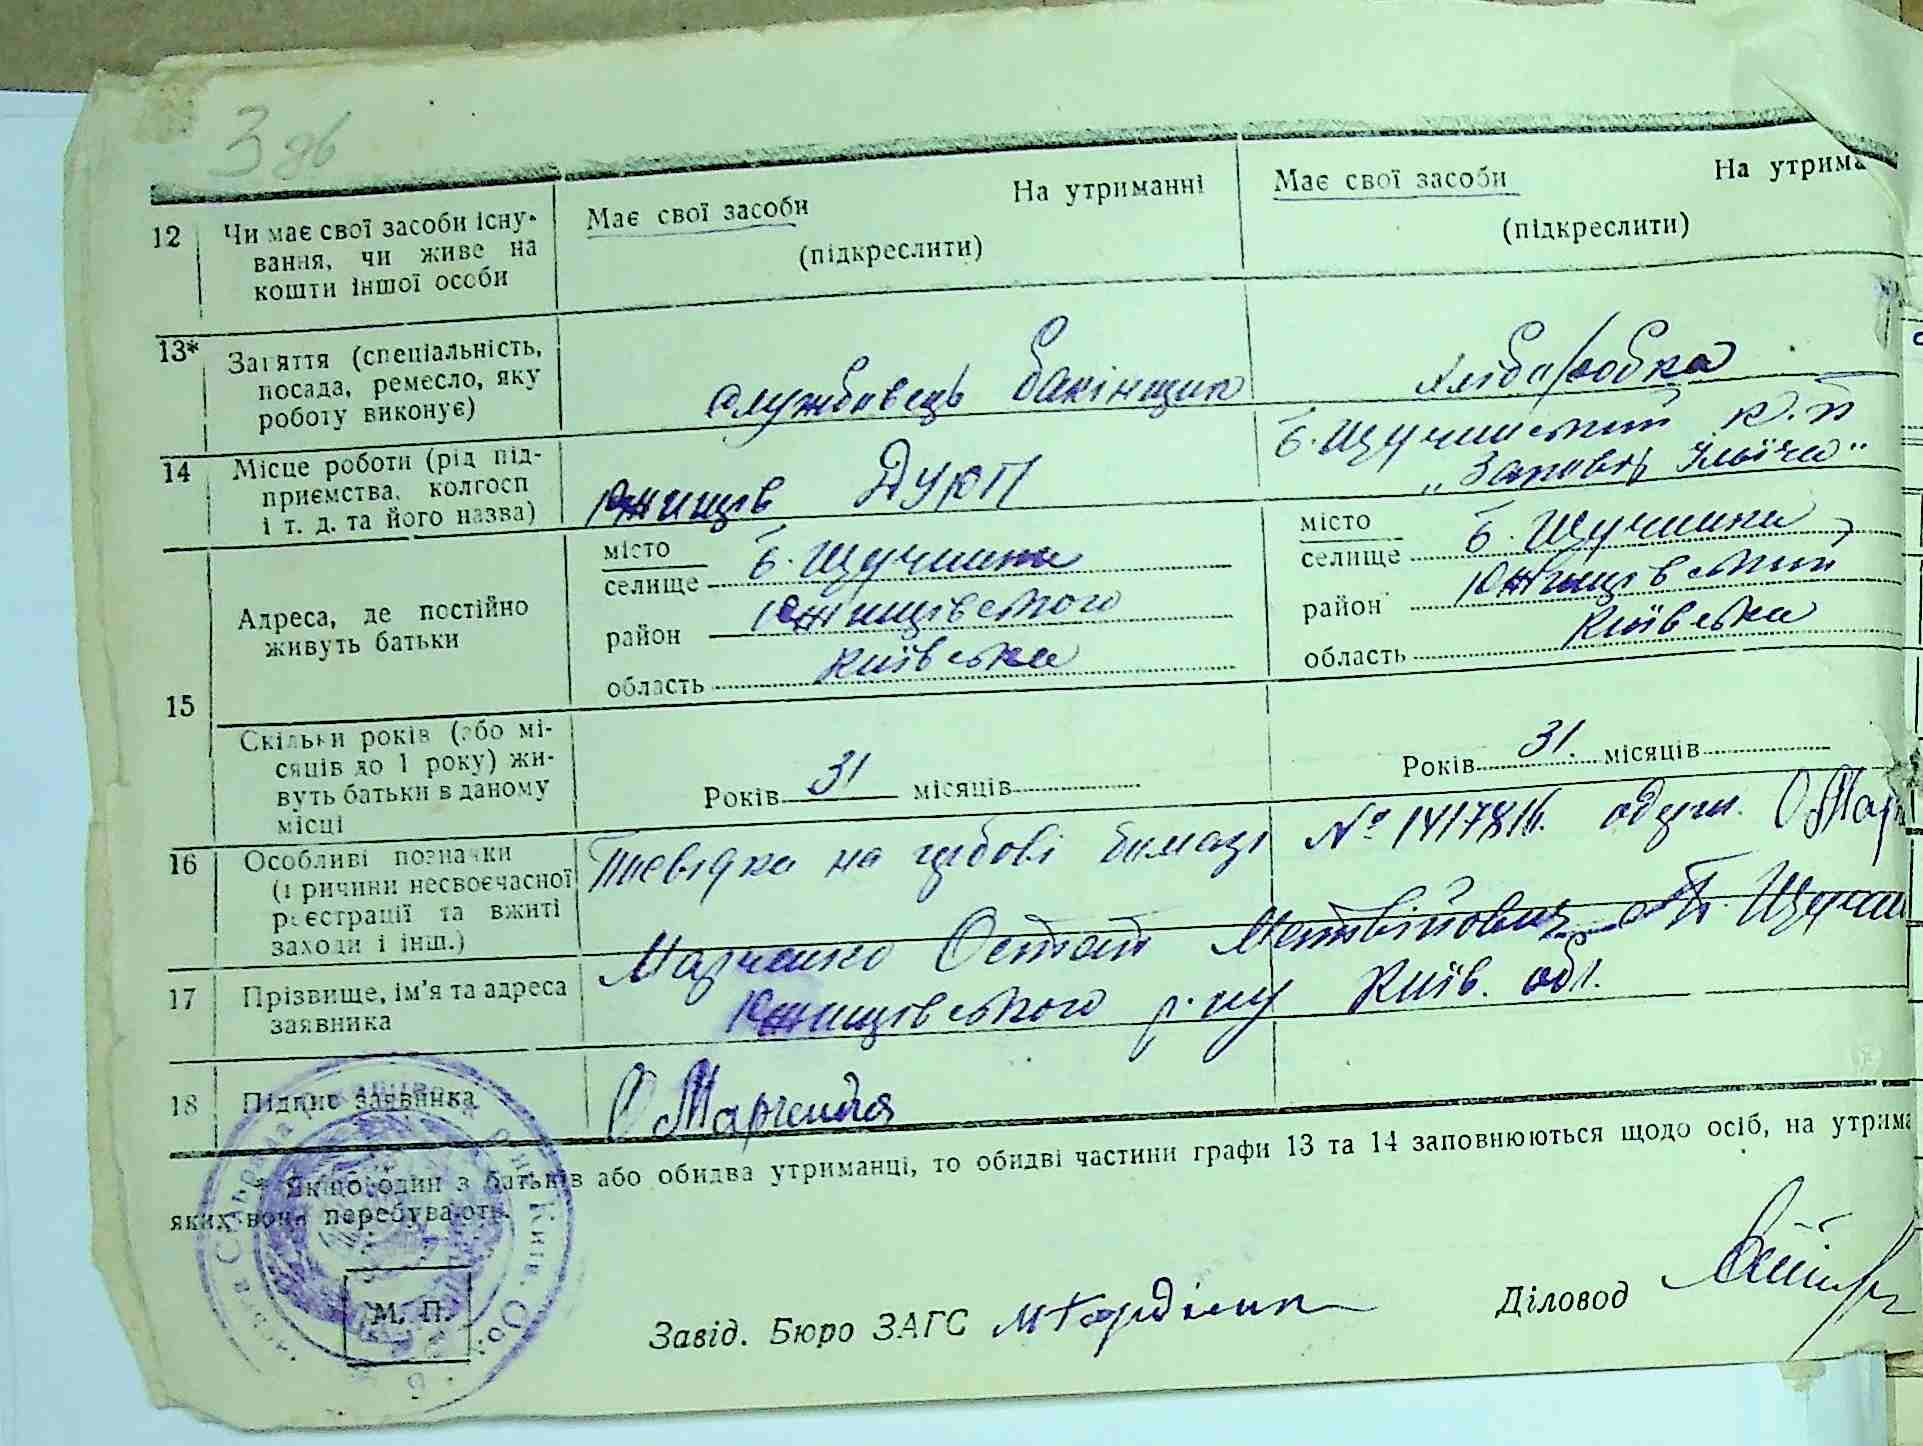 3 зв
12 Чи має свої засоби існування, чи живе на кошти іншої особи
Має свої засоби На утриманні
(підкреслити)
Має свої засоби На утрима
(підкреслити)
13* Заняття (спеціальність, посада, ремесло, яку роботу виконує)
службовець
хліборобка
14 Місце роботи (рід підприємства, колгосп і т. д. та його назва)
Ржищів
Б. Щучинський к.п
„Заповіт Ілліча"
15 Адреса, де постійно живуть батьки
місто
селище Б. Щучинка
район Ржищівського
область Київська
місто
селище Б. Щучинка
район Ржищівський
область Київська
Скільки років (або місяців до 1 року) живуть батьки в даному місці
Років 31 місяців
Років 31. місяців
16 Особливі позначки (причини несвоєчасної реєстрації та вжиті заходи і інш.)
на гербові бумазі № одерж. О Мар
17 Прізвище, ім'я та адреса заявника
Марченко Остап Щучин
Ржищівського р-ну Київ. обл.
18 Підпис заявника
О Марченко
* Якщо один з батьків або обидва утриманці, то обидві частини графи 13 та 14 заповнюються щодо осіб, на утрима
яких вони перебувають.
М. П.
Завід. Бюро ЗАГС
Діловод